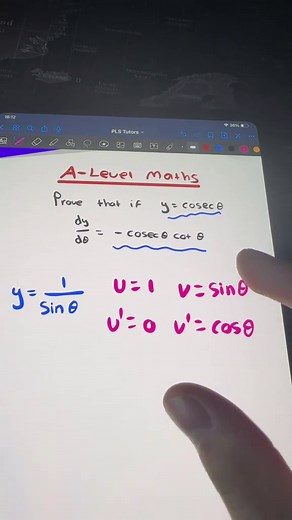 16:12
36%
PLS Tutors
A-Level Maths
Prove that if y = cosec θ
dy/dθ = - cosec θ cot θ
y = 1/sin θ u = 1 v = sin θ
u' = 0 v' = cos θ